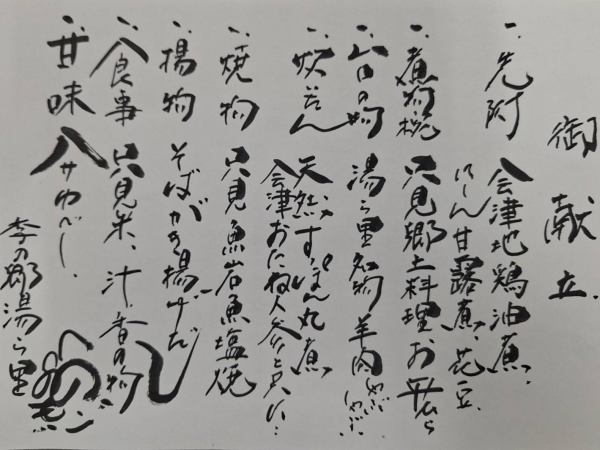 御献立
一、先附 会津地鶏油煮、
にしん甘露煮、花豆、
一、煮物椀 只見郷土料理お平ら
一、山の物 湯ら里名物羊肉しゃぶしゃぶ
一、炊合 天然すっぽん丸煮
会津おたね人参と
一、焼物 只見魚岩魚塩焼
一、揚物 そばがき揚げだし
一、食事 只見米、汁、香の物
一、甘味 ハサゆべし、
季の郷湯ら里